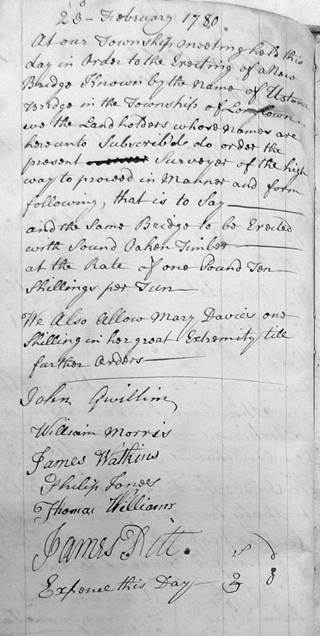 23 - February 1780.
At our Township meeting held this
day in Order to the Erecting of a New
Bridge Known by the Name of
Bridge in the Township of
we the Landholders whose Names are
hereunto Subscribd do order the
present Surveyor of the high
way to proceed in Manner and form
following, that is to Say
and the Same Bridge to be Erected
with Sound Oaken Timber
at the Rate of one Pound Ten
Shillings per Tun
We Also Allow Mary Davies one
Shilling in her great Extremity till
further Orders
John Gwillim
William Morris
James Watkins
Philip Jones
Thomas Williams
James
s d
Expence this Day 3 8